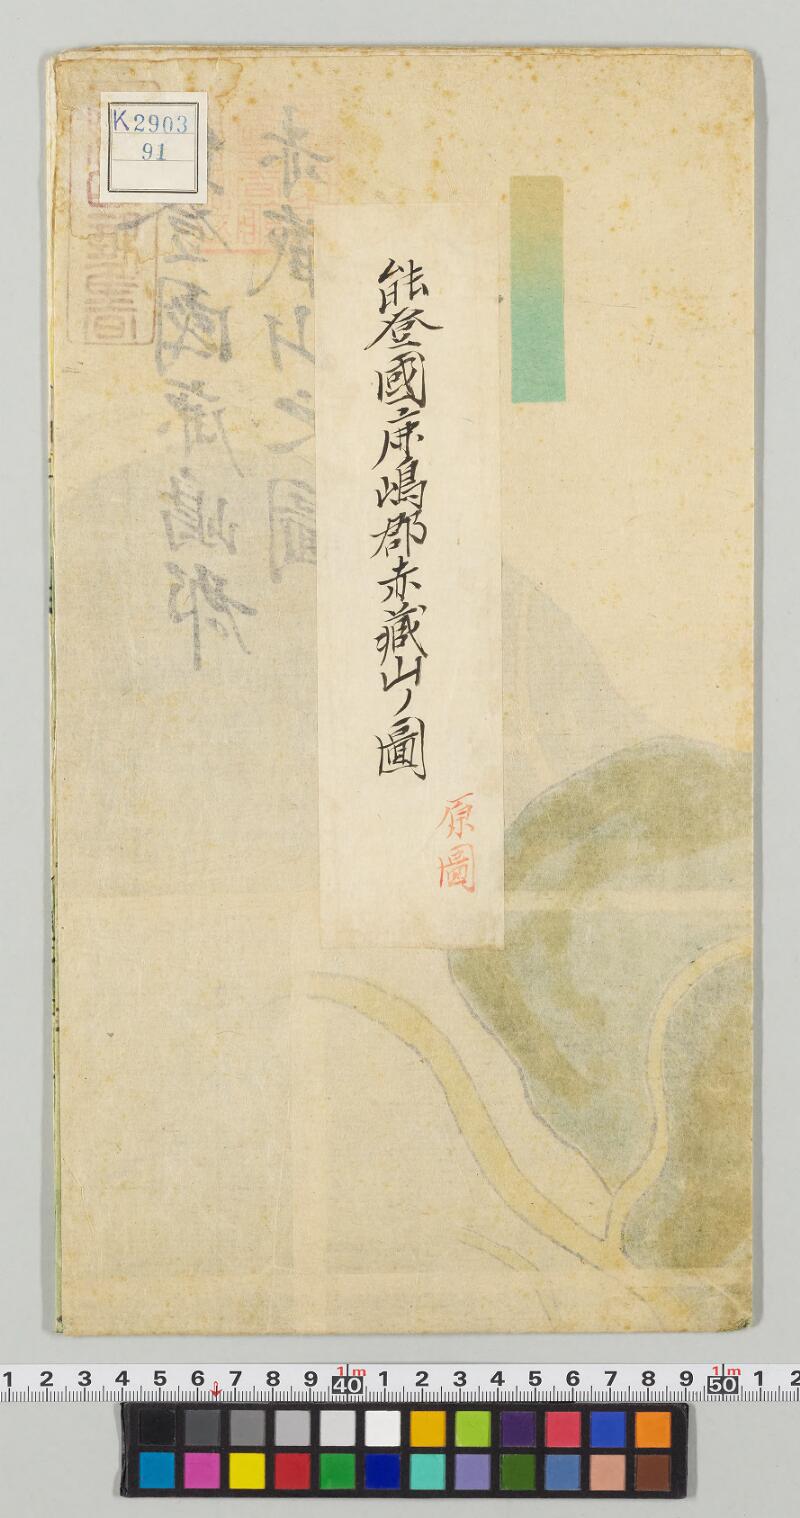 K2903
91
能登國鹿嶋郡赤藏山ノ圖
原圖
登國鹿嶋郡
赤藏山之圖
1 2 3 4 5 6 7 8 9 1m 40 1 2 3 4 5 6 7 8 9 1m 50 1 2